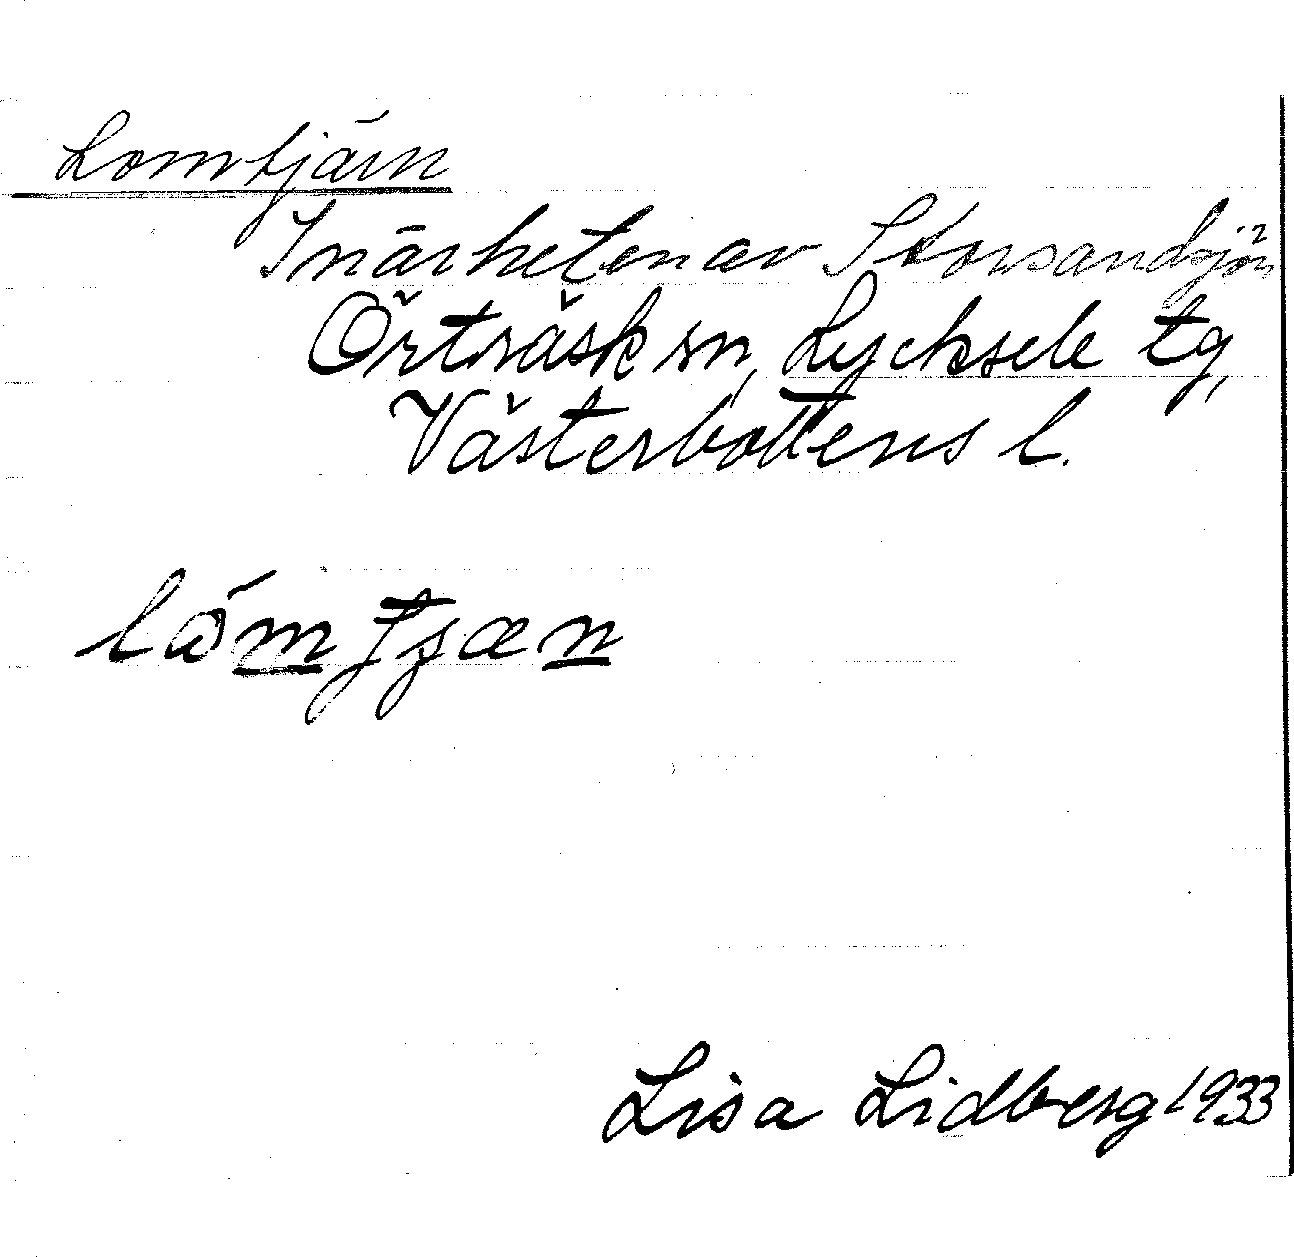 Lomtjärn
I närheten av Storsandsjön
Örträsk sn, Lycksele tg,
Västerbottens l.
Lisa Lidberg 1933